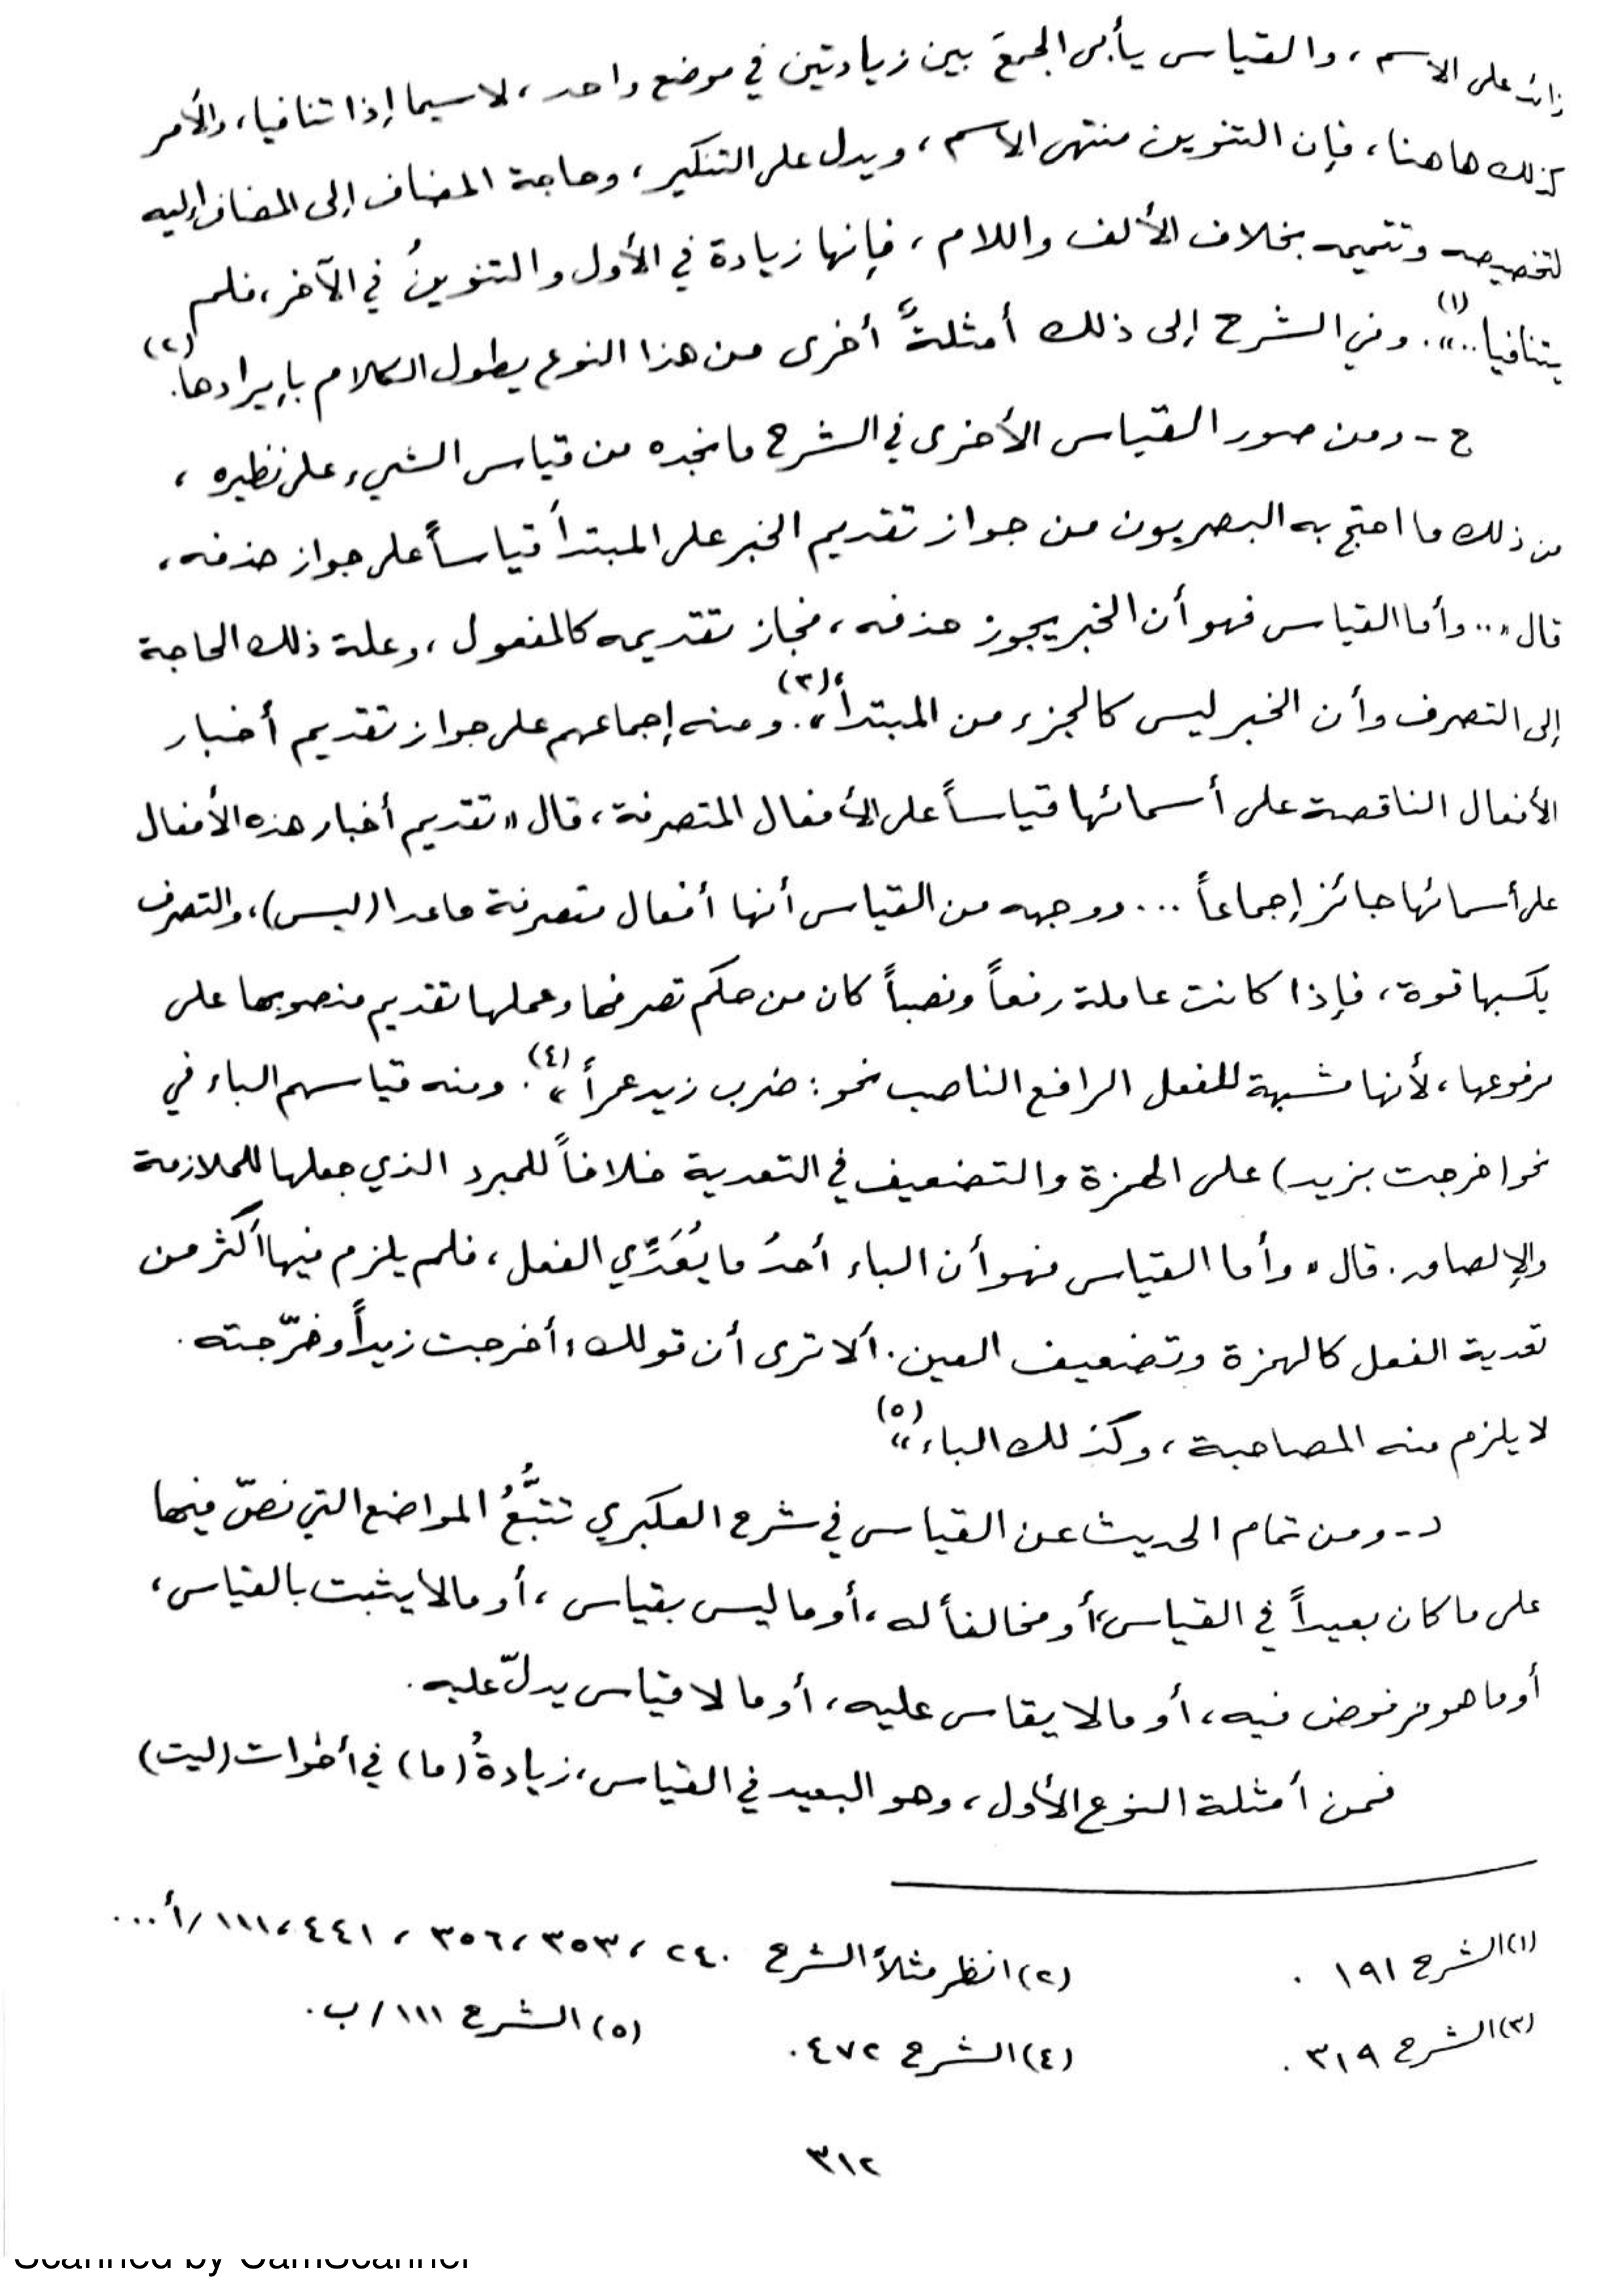 زائد على الاسم، والقياس يأبى الجمعَ بين زيادتين في موضع واحد، لاسيما إذا تنافيا، والأمر
كذلك هاهنا، فإن التنوين منتهى الاسم، ويدل على التنكير، وحاجة المضاف إلى المضاف إليه
لتخصيصه وتتميمه بخلاف الألف واللام، فإنها زيادة في الأول والتنوينُ في الآخر، فلم
يتنافيا..»(١). وفي الشرح إلى ذلك أمثلةٌ أخرى من هذا النوع يطول الكلام بإيرادها(٢).
ج - ومن صور القياس الأخرى في الشرح ما نجده من قياس الشيء على نظيره،
من ذلك ما احتج به البصريون من جواز تقديم الخبر على المبتدأ قياساً على جواز حذفه،
قال «.. وأما القياس فهو أن الخبر يجوز حذفه، فجاز تقديمه كالمفعول، وعلة ذلك الحاجة
إلى التصرف وأن الخبر ليس كالجزء من المبتدأ»(٣). ومنه إجماعهم على جواز تقديم أخبار
الأفعال الناقصة على أسمائها قياساً على الأفعال المتصرفة، قال «تقديم أخبار هذه الأفعال
على أسمائها جائز إجماعاً ... ووجهه من القياس أنها أفعال متصرفة ماعدا (ليس)، والتصرف
يكسبها قوة، فإذا كانت عاملة رفعاً ونصباً كان من حكم تصرفها وعملها تقديم منصوبها على
مرفوعها، لأنها مشبهة للفعل الرافع الناصب نحو: ضرب زيد عمراً»(٤). ومنه قياسهم الباء في
نحو (خرجت بزيد) على الهمزة والتضعيف في التعدية خلافاً للمبرد الذي جعلها للملازمة
والإلصاق. قال «وأما القياس فهو أن الباء أحدُ ما يُعَدِّي الفعل، فلم يلزم فيها أكثر من
تعدية الفعل كالهمزة وتضعيف العين. ألا ترى أن قولك: أخرجت زيداً وخرّجته.
لا يلزم منه المصاحبة، وكذلك الباء»(٥)
د- ومن تمام الحديث عن القياس في شرح العكبري تتبُّعُ المواضع التي نصّ فيها
على ما كان بعيداً في القياس، أو مخالفاً له، أو ما ليس بقياس، أو مالا يثبت بالقياس،
أو ما هو مرفوض فيه، أو مالا يقاس عليه، أو ما لا قياس يدلّ عليه.
فمن أمثلة النوع الأول، وهو البعيد في القياس، زيادةُ (ما) في أخوات (ليت)
(١) الشرح ١٩١ .
(٢) انظر مثلاً الشرح ٢٤٠ ، ٣٥٣ ، ٣٥٦ ، ٤٤١ ، ١١١/أ ...
(٣) الشرح ٣١٩ .
(٤) الشرح ٤٧٢ .
(٥) الشرح ١١١ / ب .
٣١٢
Scanned by CamScanner